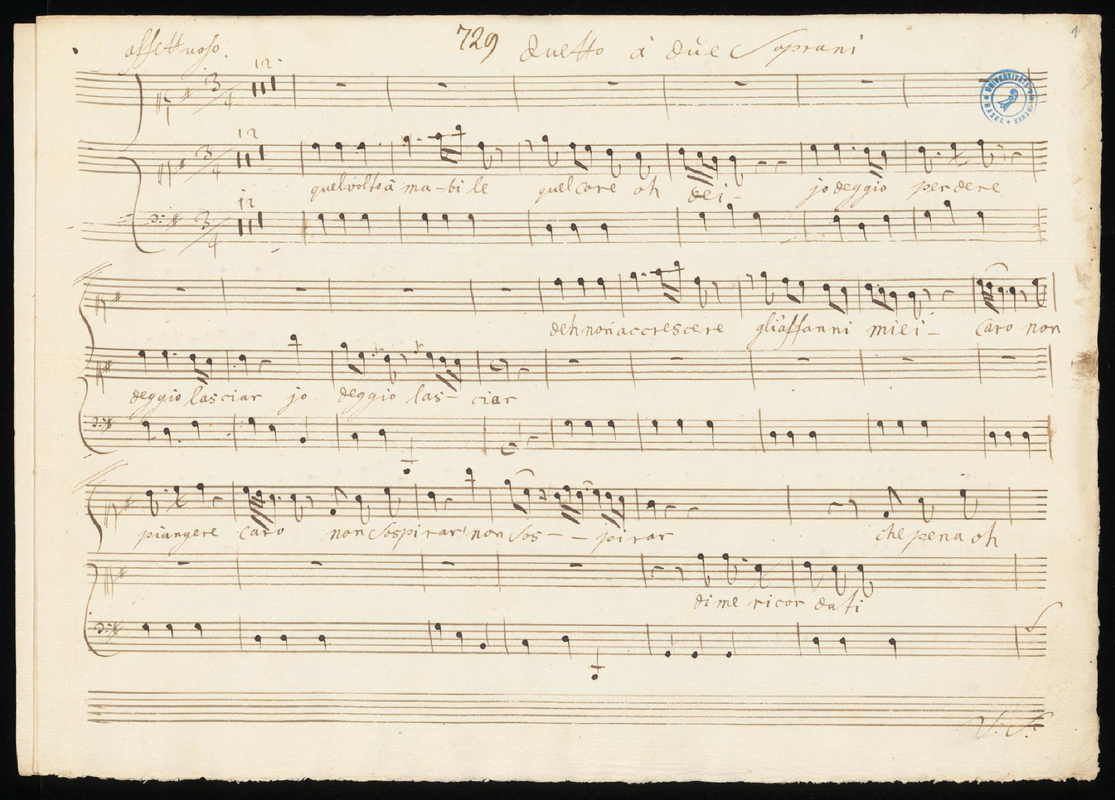 affettuoso. 729 duetto à düe Soprani
1
12
3/4
12
3/4
quel volto à ma-bi le quel core oh dei- jo deggio perdere
12
3/4
deh non accrescere gli affanni miei- Caro non
deggio lasciar jo deggio las- ciar
piangere caro non Sospirar' non Sos- - pirar che pena oh
di me ricor dati
V: S:
UNIVERSITÄTS BIBLIOTHEK BASEL